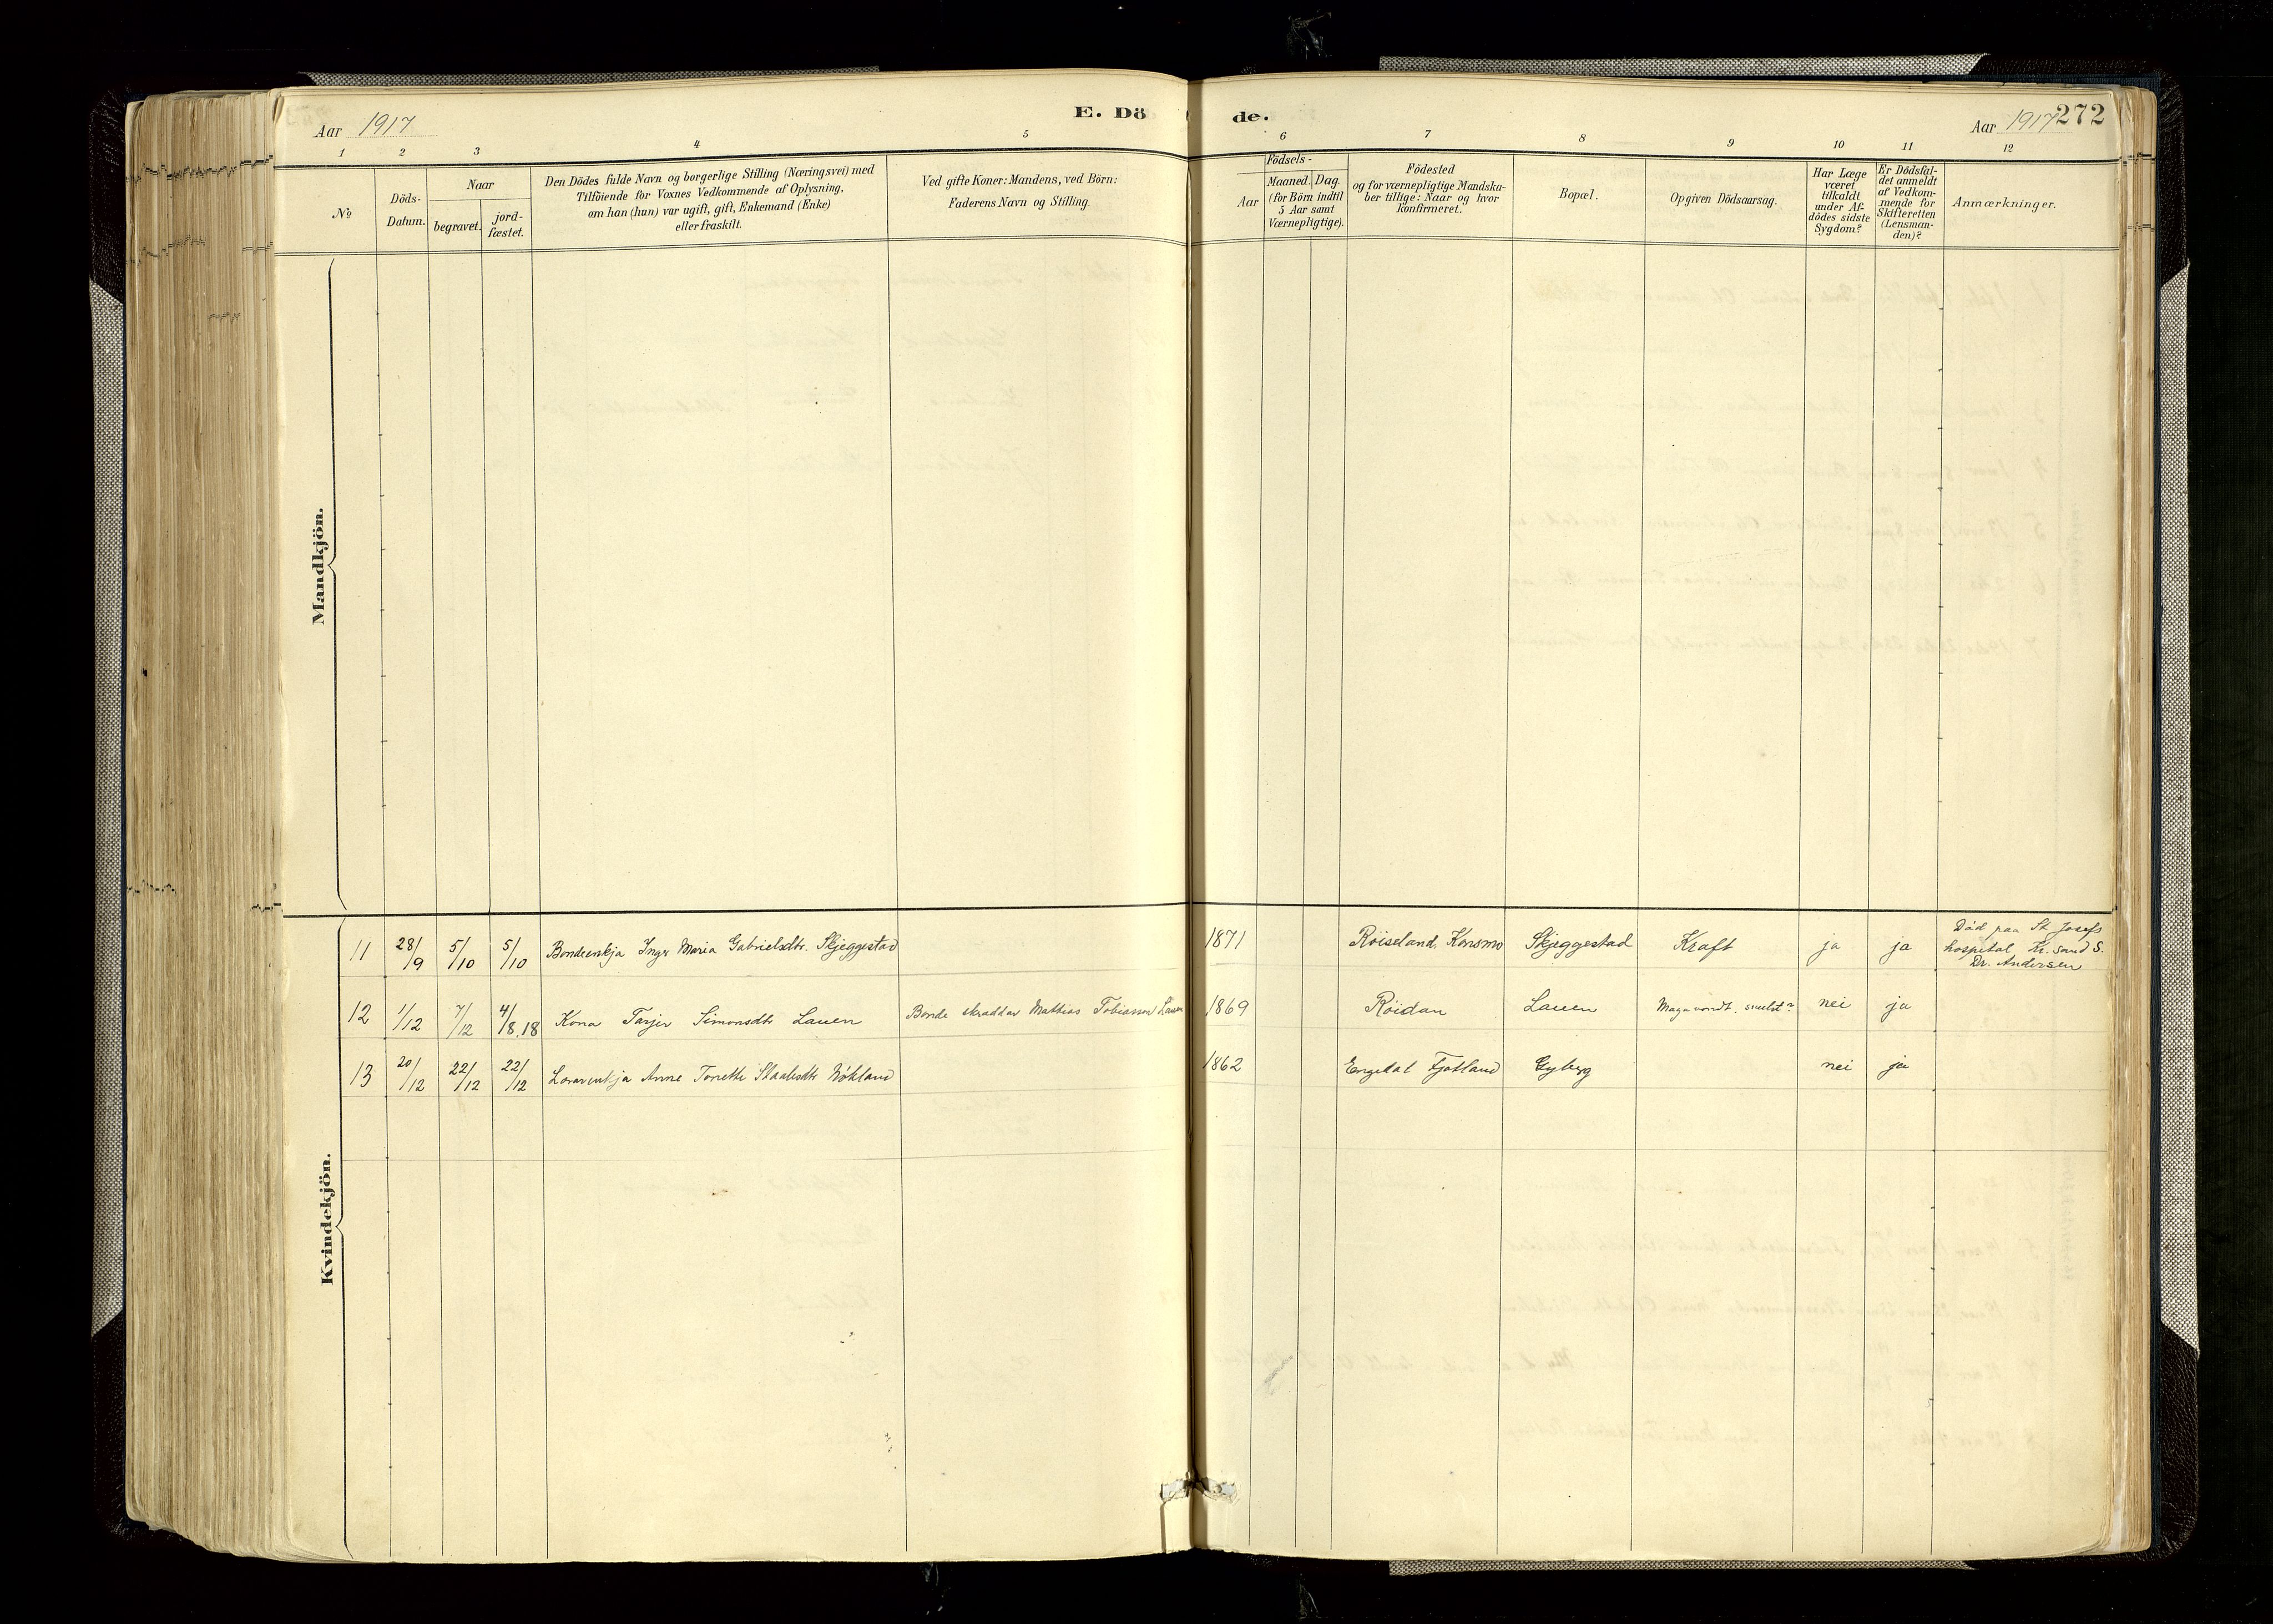 Aar 1917
E. Dö de.
Aar 1917 272
1 2 3 4 5 6 7 8 9 10 11 12
№
Döds-
Datum.
Naar
begravet.
jord-
fæstet.
Den Dödes fulde Navn og borgerlige Stilling (Næringsvei) med
Tilföiende for Voxnes Vedkommende af Oplysning,
om han (hun) var ugift, gift, Enkemand (Enke)
eller fraskilt.
Ved gifte Koner: Mandens, ved Börn:
Faderens Navn og Stilling.
Födsels-
Aar
Maaned. Dag.
(for Börn indtil
5 Aar samt
Værnepligtige).
Födested
og for værnepligtige Mandska-
ber tillige: Naar og hvor
konfirmeret.
Bopæl.
Opgiven Dödsaarsag.
Har Læge
været
tilkaldt
under Af-
dödes sidste
Sygdom?
Er Dödsfal-
det anmeldt
af Vedkom-
mende for
Skifteretten
(Lensman-
den)?
Anmærkninger.
Mandkjön.
Kvindekjön.
11 28/9 5/10 5/10 Bondeenkja Inger Maria Gabrielsdtr. Skjeggestad 1871 Röiseland, Konsmo Skjeggestad Kraft ja ja Död paa St. Josefs
hospital Kr.sand S.
Dr. Andersen
12 1/12 7/12 4/8.18 Kona Tarjer Simonsdtr Lauen Bonde skraddar Mathias Tobiassen Lauen 1869 Röidan Lauen Magavondt. svulst? nei ja
13 20/12 22/12 22/12 Anne Tonette 1862 Engedal Fjotland Gyberg nei ja